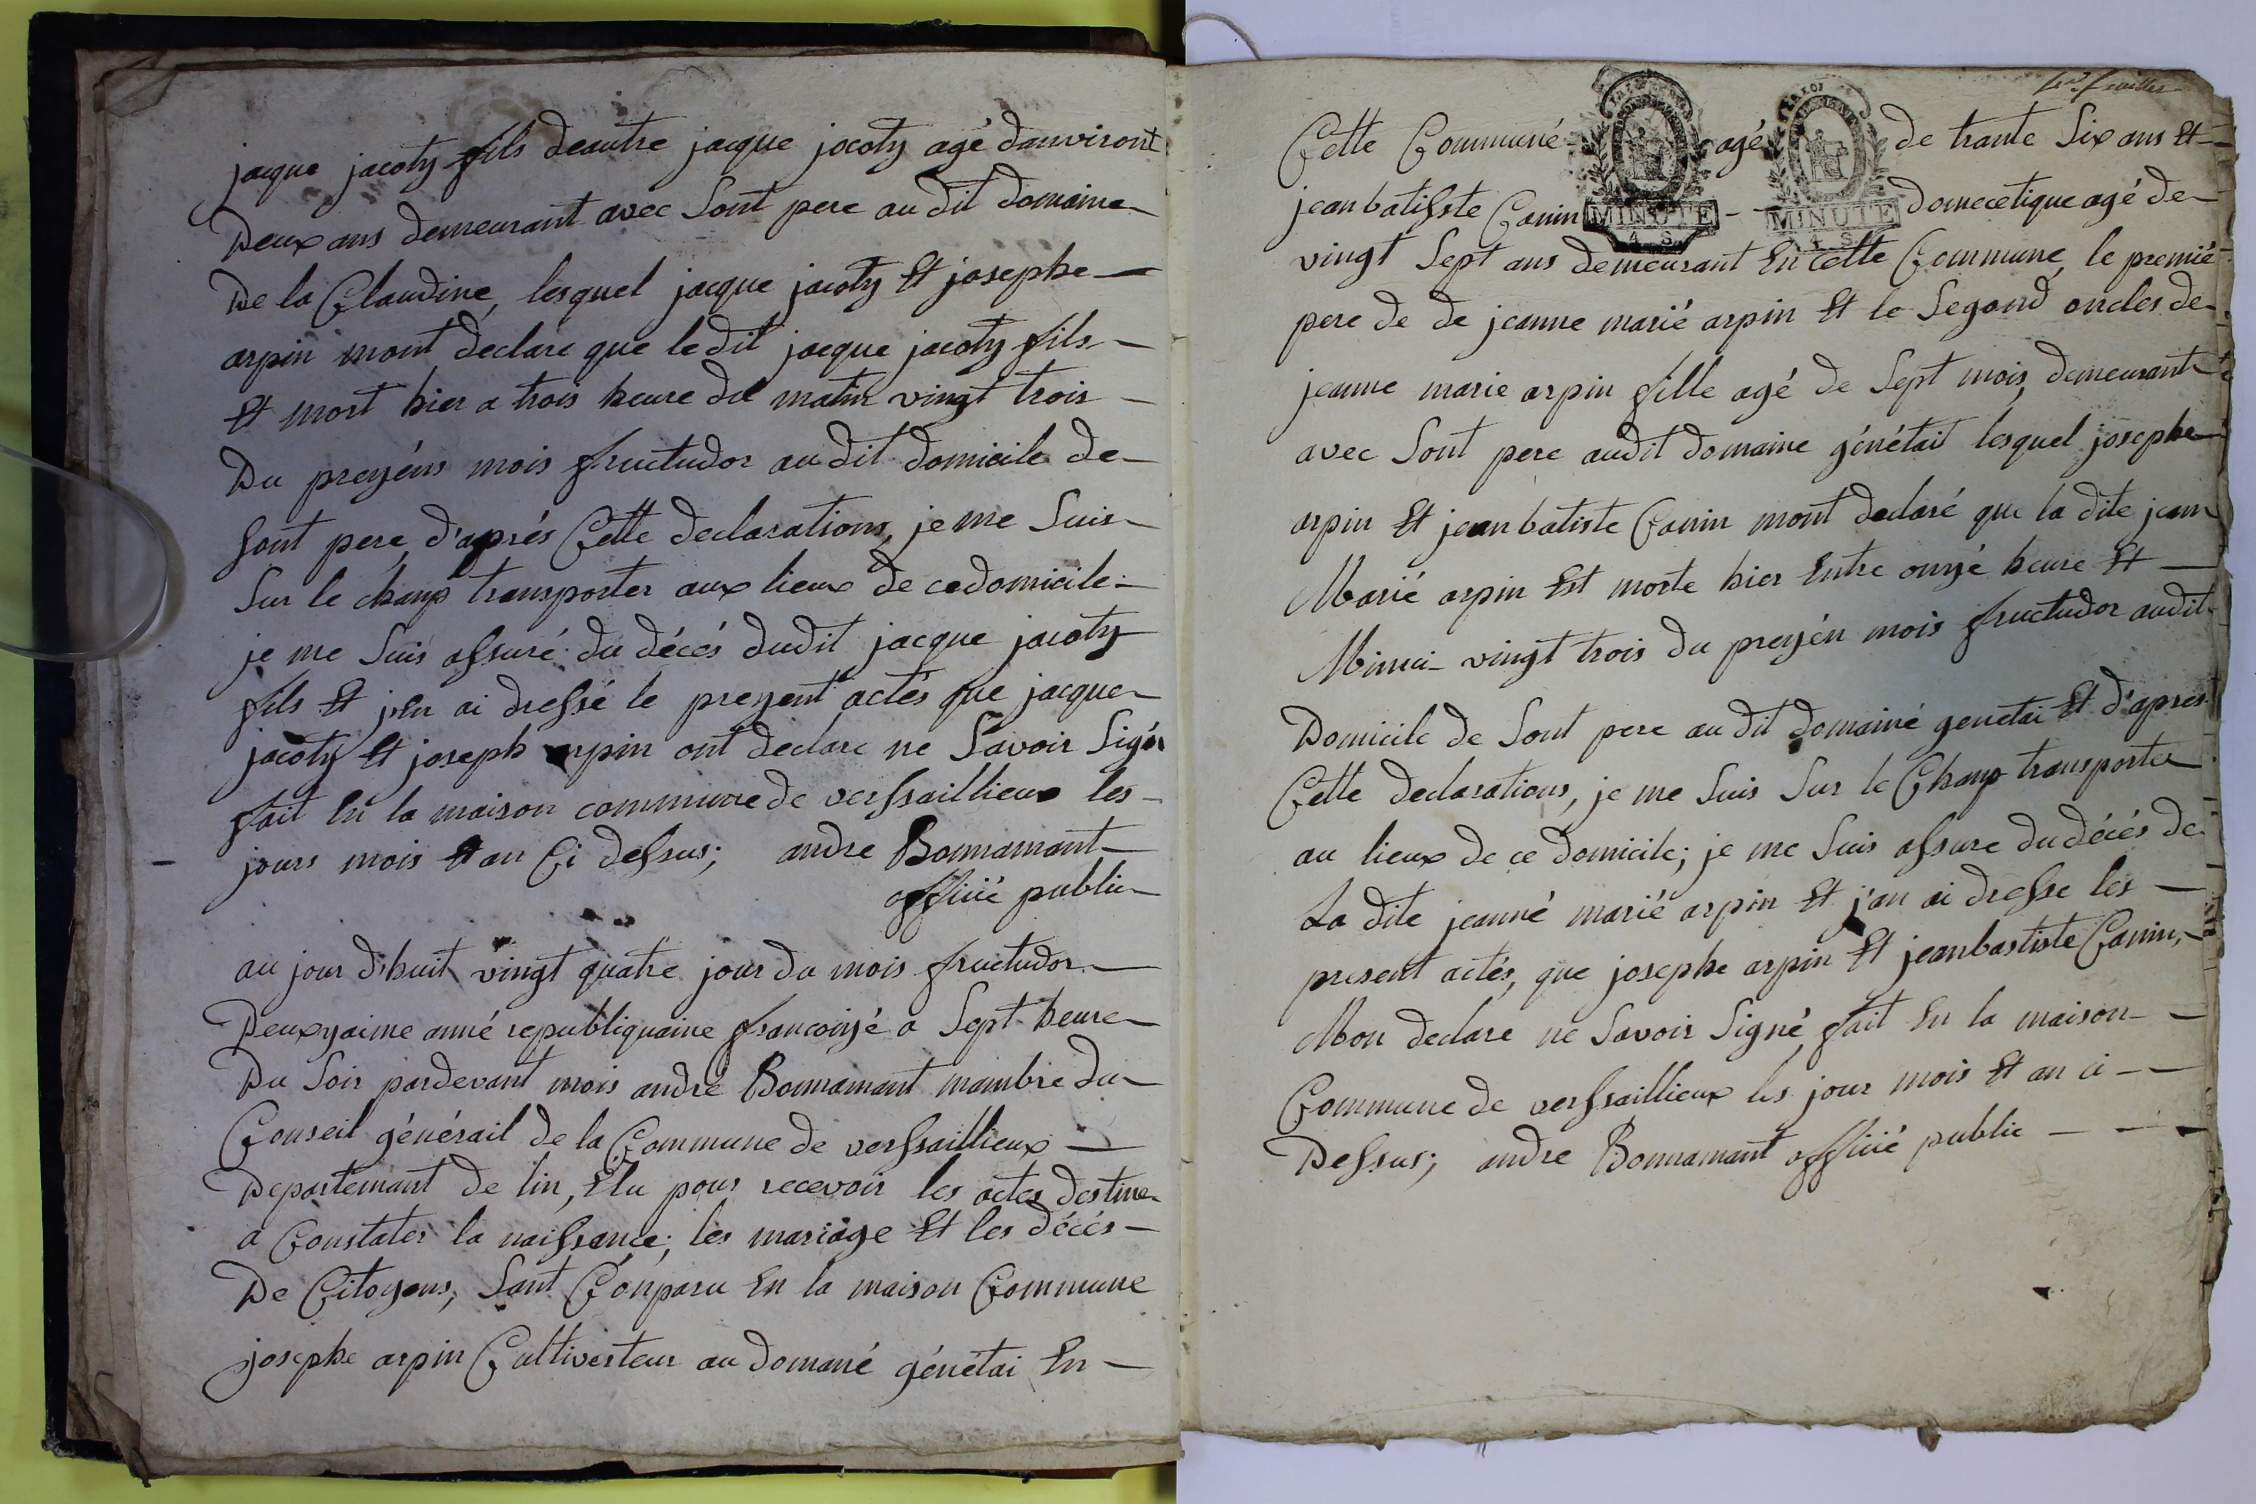 jacque jacoty fils deautre jacque jocoty agé danviront
Deux ans demeurant avec Sont pere au dit domaine
De la Claudine, lesquel jacque jacoty Et josephe
arpin mont declare que le dit jacque jacoty fils
Et mort hier a trois heure du matin vingt trois
Du preyéns mois fructudor au dit domicile de
Sont pere, d'aprés Cette declarations, je me Suis
Sur le champ transporter aux lieux de ce domicile
je me Suis assuré du décés dudit jacque jacoty
fils Et j'En ai dressé le preyent actés que jacque
jacoty Et joseph arpin ont declare ne Savoir Signé
fait En la maison commune de verssaillieux les
jours mois Et an Ci dessus; andre Bonnamant
officié public
au jour d'huit vingt quatre jour du mois fructudor
Deuxyaime anné republiquaine francoiyé a Sept heure
Du Soir pardevant mois andré Bonnamant mambre du
Conseil générail de la Commune de verssaillieux
Departemant de lin, Élu pour recevoir les actes destine
a Constater la naissance; les mariage Et les décés
De Citoyens; Sont Conparu En la maison Commune
josephe arpin Cultiverteur au domané génétai En
4e feuillet
Cette Communé agé de trante Six ans Et
jean batisste Canin domecetique agé de
MINUTE MINUTE
4. S. 4. S.
vingt Sept ans demeurant En cette Commune, le premié
pere de de jeanne marié arpin Et le Segond oncles de
jeanne marie arpin fille agé de Sept mois, demeurant
avec Sont pere audit domaine génétait lesquel josephe
arpin Et jean batiste Canin mont declaré que la dite jean
Marié arpin Est morte hier Entre onyé heure Et
Minui vingt trois du preyén mois fructudor audit
Domicile de Sont pere au dit domainé genetai Et d'apres
Cette declarations, je me Suis Sur le Champ transporter
au lieux de ce domicile; je me Suis assure du décés de
La dite jeanné marié arpin Et j'an ai dresse les
present actés, que josephe arpin Et jeanbastiste Canin,
Mon declare ne Savoir Signé fait En la maison
Commune de verssaillieux les jour mois Et an ci
Dessus; andre Bonnamant officié public